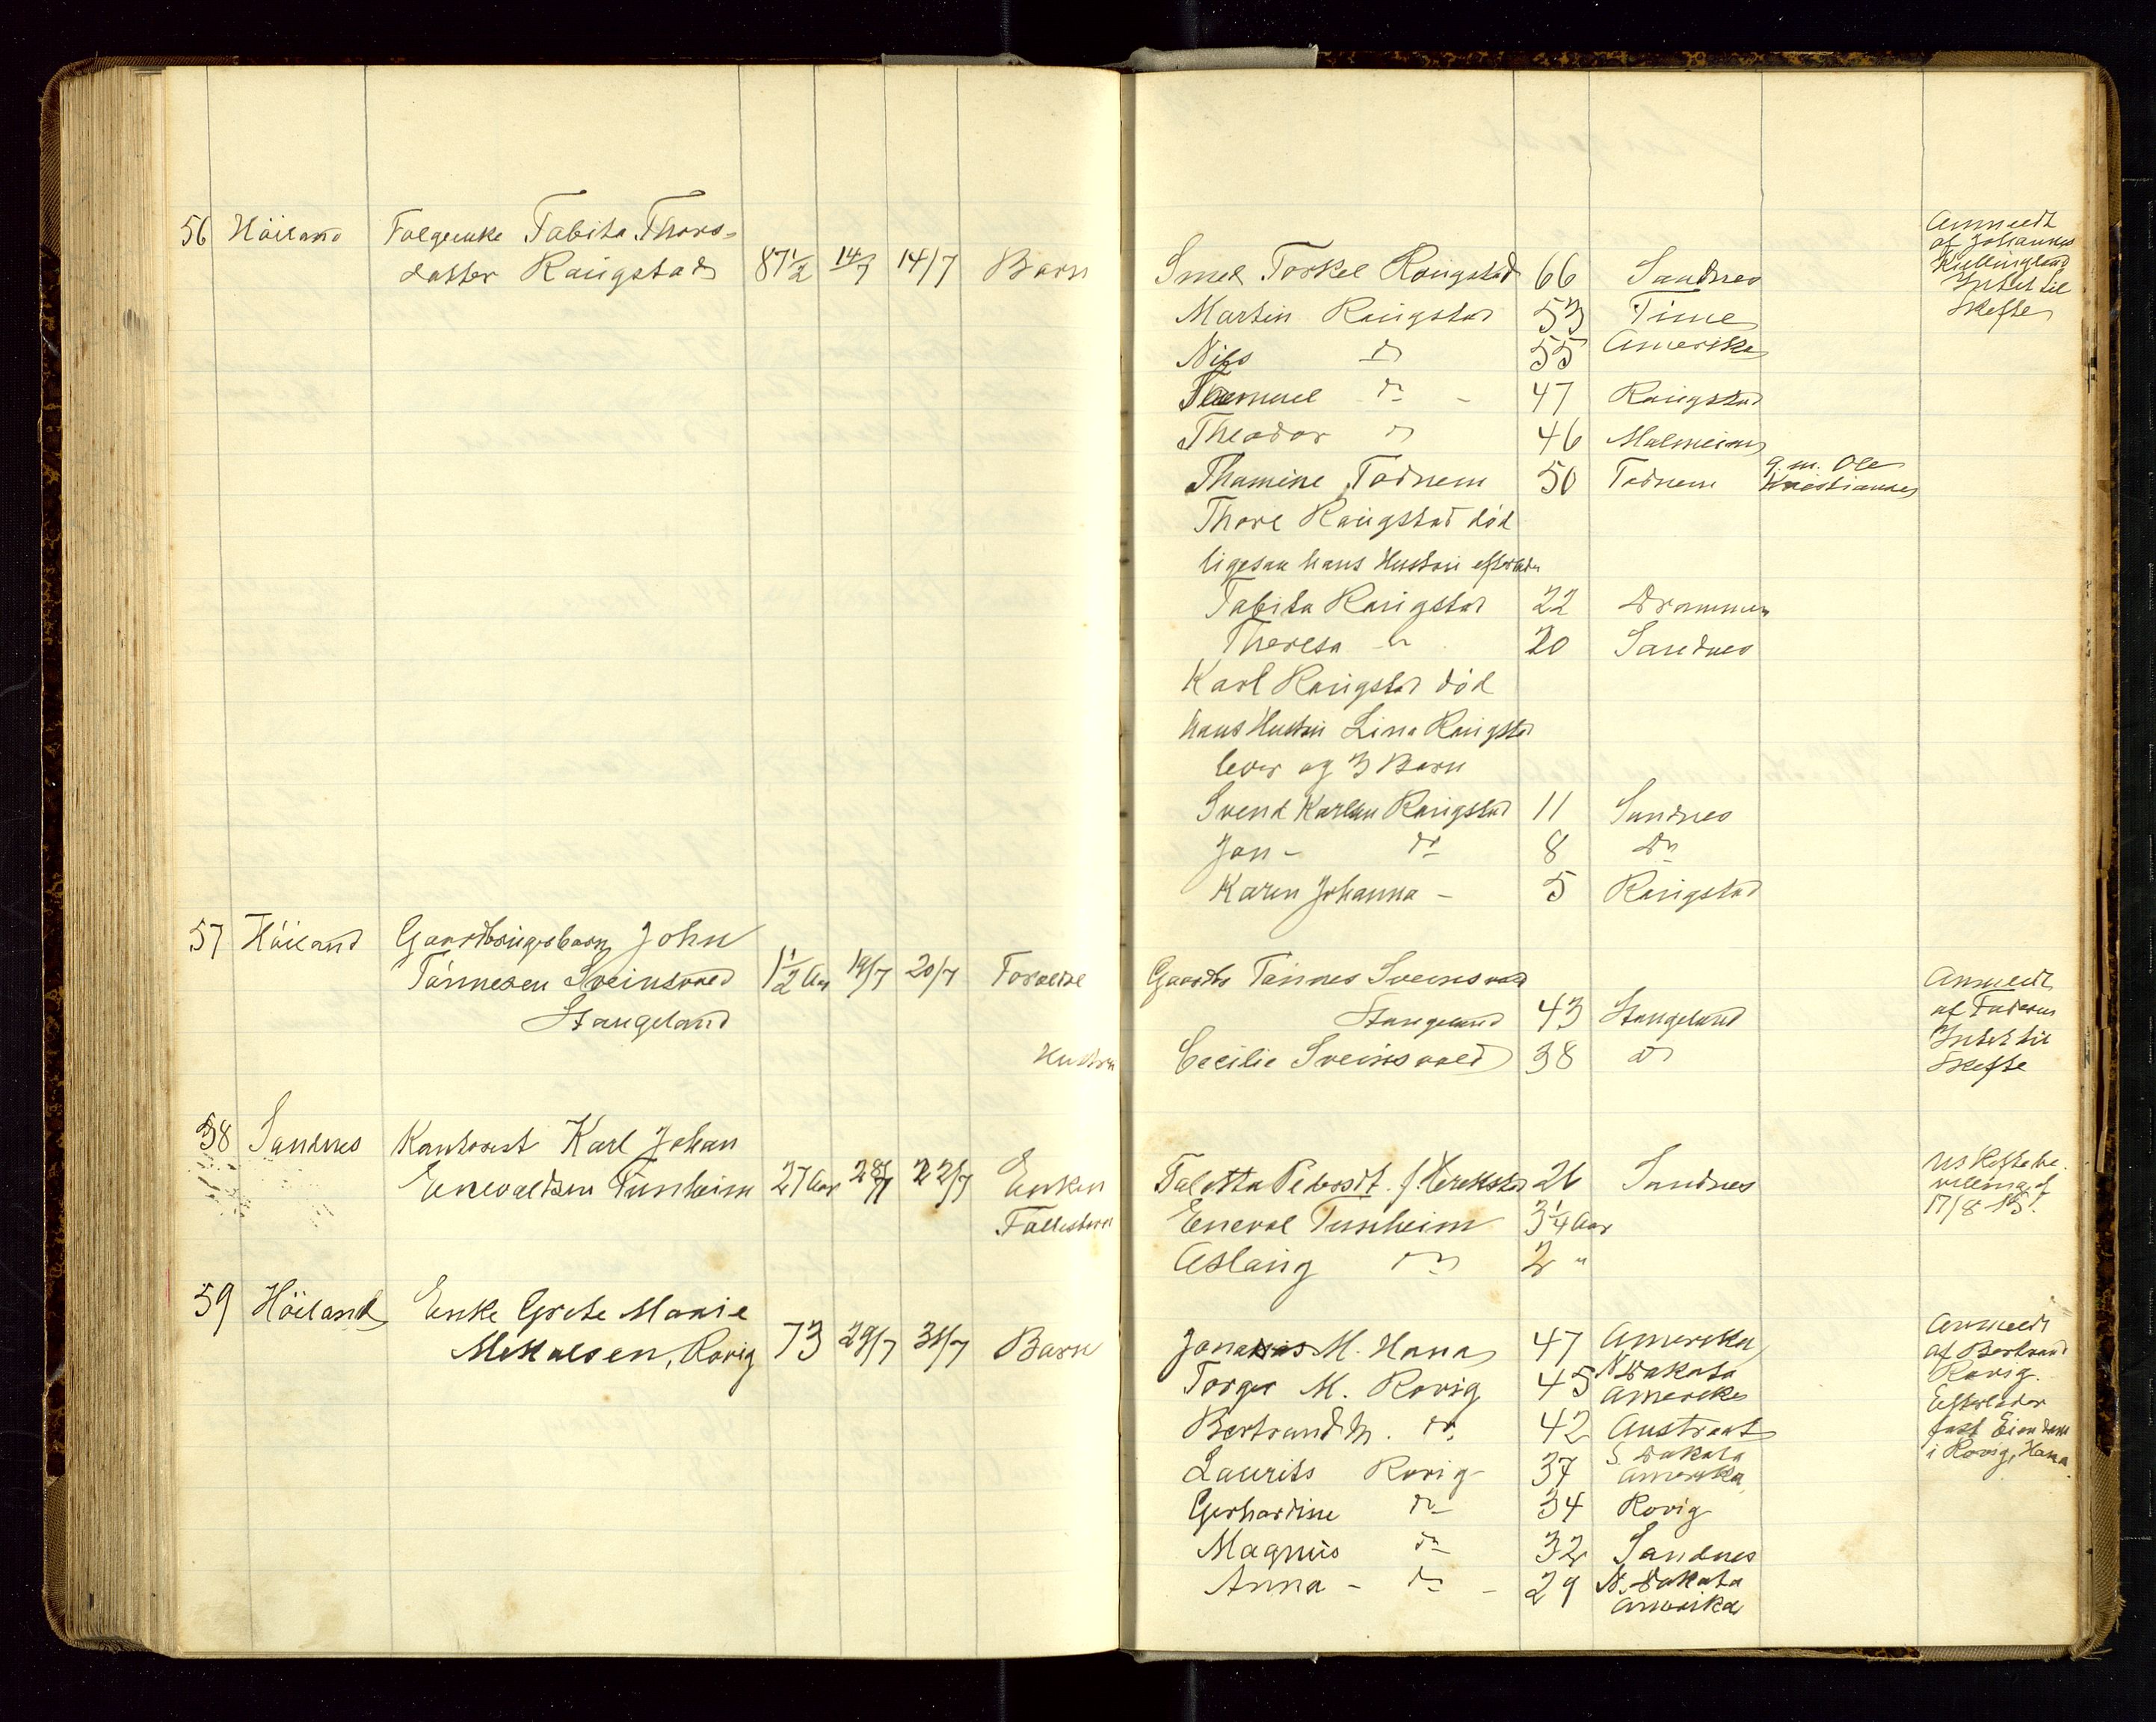 56 Höiland Folgeenke Tabita Thors-
datter Raugstad 87½ 14/7 14/7 Børn
Smed Torkel Raugstad 66 Sandnes
Martin Raugstad 53 Time
Nils do 55 Amerika
47 Raugstad
Theodor do 46 Malmeim
Thamine Todnem 50 Todnem g. m. Ole
Thore Raugstad död
ligesaa hans Hustru
Tabita Raugstad 22 Drammen
Theresa do 20 Sandnes
Karl Raugstad död
hans Hustru Lina Raugstad
lever og 3 Børn
Svend Karlsen Raugstad 11 Sandnes
Jon - do 8 do
Karen Johanna - 5 Raugstad
Anmeldt
af Johannes
Kjellingland
Intet til
Skifte
57 Höiland Gaardbrugerbarn John
Tönnesen Sveinsvold 1½ Aar 19/7 20/7 Forældre
Stangeland
Hustru
Gaardbr Tönnes Sveinsvold
Stangeland 43 Stangeland
Cecilie Sveinsvold 38 do
Anmeldt
af Faderen
Intet til
Skifte
58 Sandnes Kontorist Karl Johan
Enevaldsen Tunheim 27 Aar 22/7 Enken
Fællesbørn
26 Sandnes
Eneval Tunheim 3¼ Aar
Aslaug do 2 "
17/8-15.
59 Höiland Enke Grete Marie
Mikalsen, Rovig 73 29/7 31/7 Børn
Jonas M. Hana 47 Amerika
Torger M. Rovig 45 N Dakota
Amerika
Bertrand M. do 42 Austraat
Laurits Rovig 37 S. Dakota
Amerika
Gerhardine do 34 Rovig
Magnus do 32 Sandnes
Anna - do - 29 N. Dakota
Amerika
Anmeldt
af Bertrand
Rovig.
Efterlader
fast Eiendom
i Rovig, Hana.